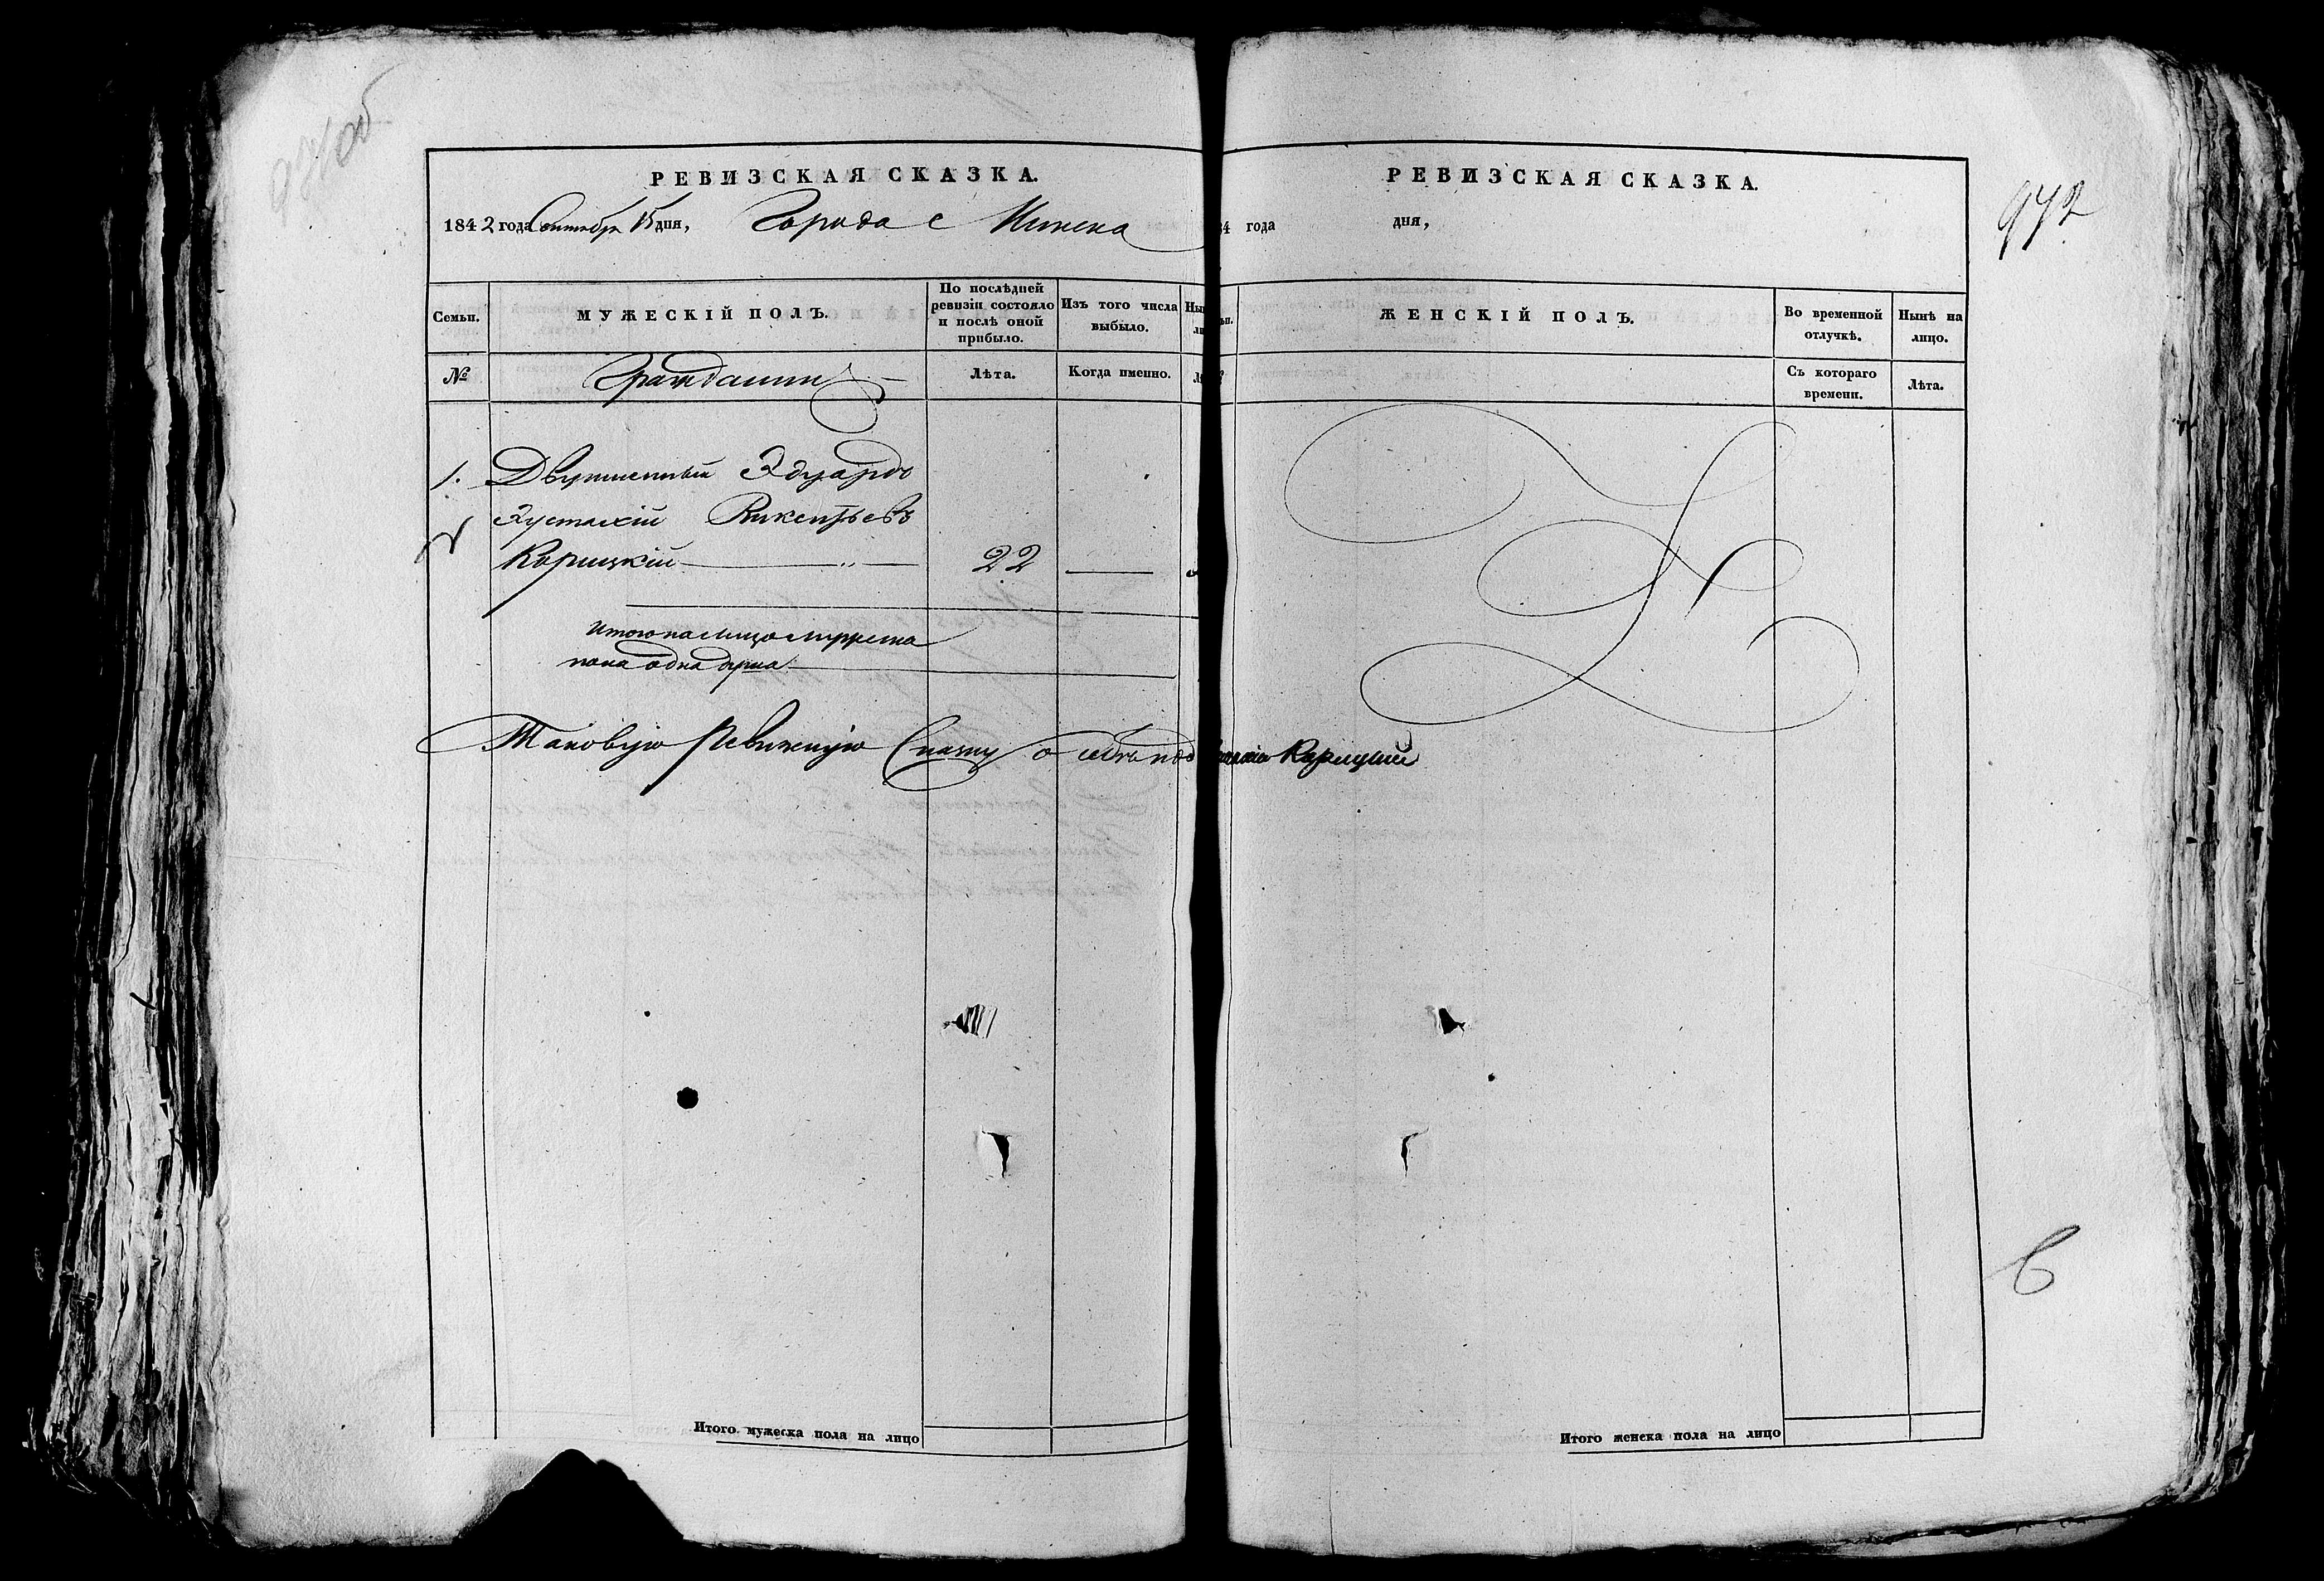 971 об
РЕВИЗСКАЯ СКАЗКА.
1842 года Сентября 15 дня, Города Минска
Семьи.
МУЖЕСКІЙ ПОЛЪ.
По послѣдней
ревизіи состояло
и послѣ оной
прибыло.
Изъ того числа
выбыло.
№
Гражданинъ
Лѣта.
Когда именно.
1. Двуименный Эдуардъ
Эустахій Викентьевъ
Корицкій 22
Итого на лицо мужеска
пола одна душа
Таковую Ревизскую Сказку о себѣ
Итого мужеска пола на лицо
РЕВИЗСКАЯ СКАЗКА.
972
84 года дня,
ЖЕНСКІЙ ПОЛЪ.
Во временной
отлучкѣ.
Нынѣ на
лицо.
Съ котораго
времени.
Лѣта.
Корицкій
6
Итого женска пола на лицо